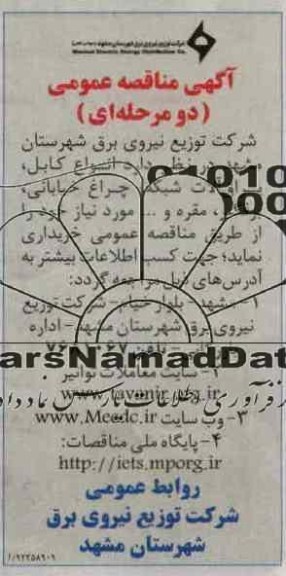 شرکت توزیع نیروی برق شهرستان مشهد
Mashhad Electric Energy Distribution Co.
آگهی مناقصه عمومی
(دو مرحله‌ای)
شرکت توزیع نیروی برق شهرستان
مشهد در نظر دارد انواع کابل،
چراغ خیابانی،
مقره و ... مورد نیاز خود را
از طریق مناقصه عمومی خریداری
نماید؛ جهت کسب اطلاعات بیشتر به
آدرس‌های ذیل مراجعه گردد:
۱- مشهد- بلوار خیام- شرکت توزیع
نیروی برق شهرستان مشهد- اداره
۲- سایت معاملات توانیر
www.tavanir.org.ir
۳- وب سایت www.Meedc.ir
۴- پایگاه ملی مناقصات:
http://iets.mporg.ir
روابط عمومی
شرکت توزیع نیروی برق
شهرستان مشهد